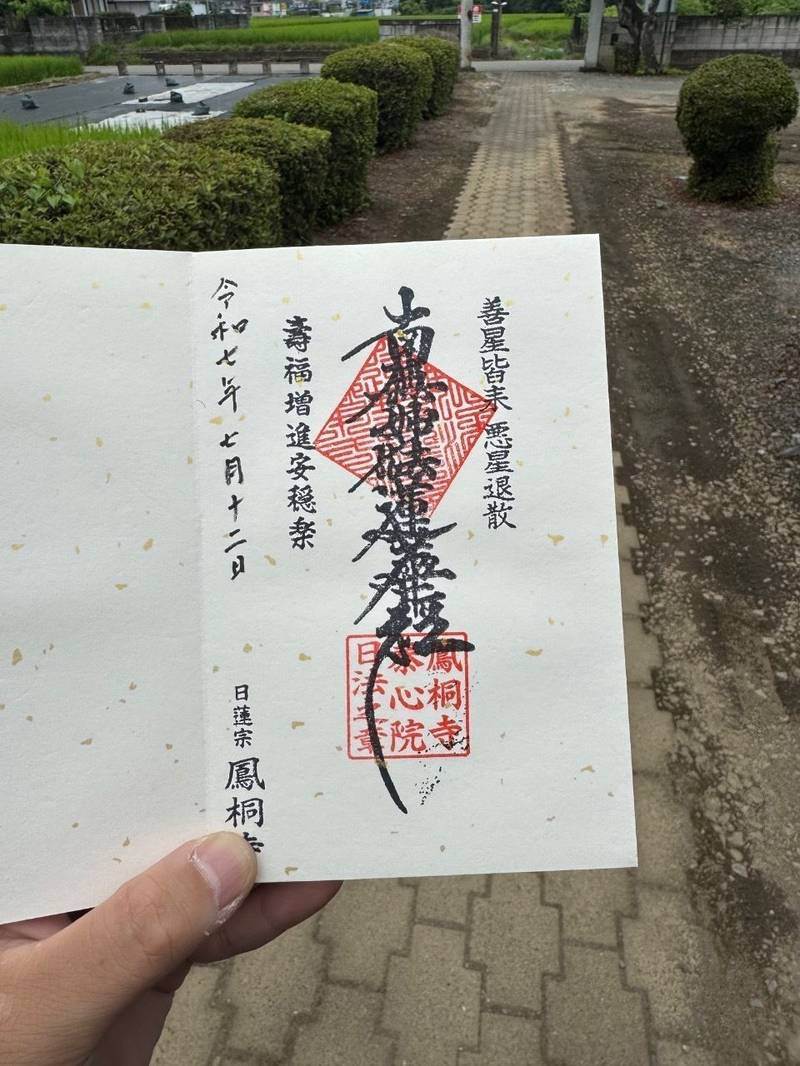 善星皆来 悪星退散
南無妙法蓮華経
鳳桐寺
泰心院
日法之章
壽福増進安穏楽
令和七年七月十二日
日蓮宗 鳳桐寺